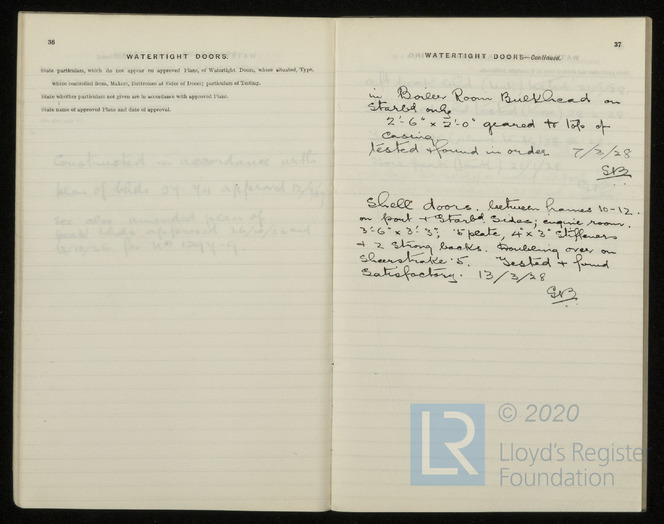 36
WATERTIGHT DOORS.
State particulars, which do not appear on approved Plans, of Watertight Doors, where situated, Type,
where controlled from, Makers, Dutrenoes at Sides of Doors; particulars of Testing.
State whether particulars not given are in accordance with approved Plans.
State name of approved Plans and date of approval.
Constructed in accordance with
plan of blkds approved
see also amended plan of
blkds approved
37
WATERTIGHT DOORS—Continued.
in Boiler Room Bulkhead on
Starbd only
2'-6" x 5'-0" geared to top of
casing
tested + found in order 7/3/28
SB
Shell doors. between frames 10-12.
on port + Starbd sides; engine room.
3'-6" x 3'-3"; .5 plate, 4" x 3" stiffeners
+ 2 strong backs. Doubling over on
Sheerstrake .5. Tested + found
Satisfactory. 13/3/28
SB
LR © 2020
Lloyd's Register
Foundation